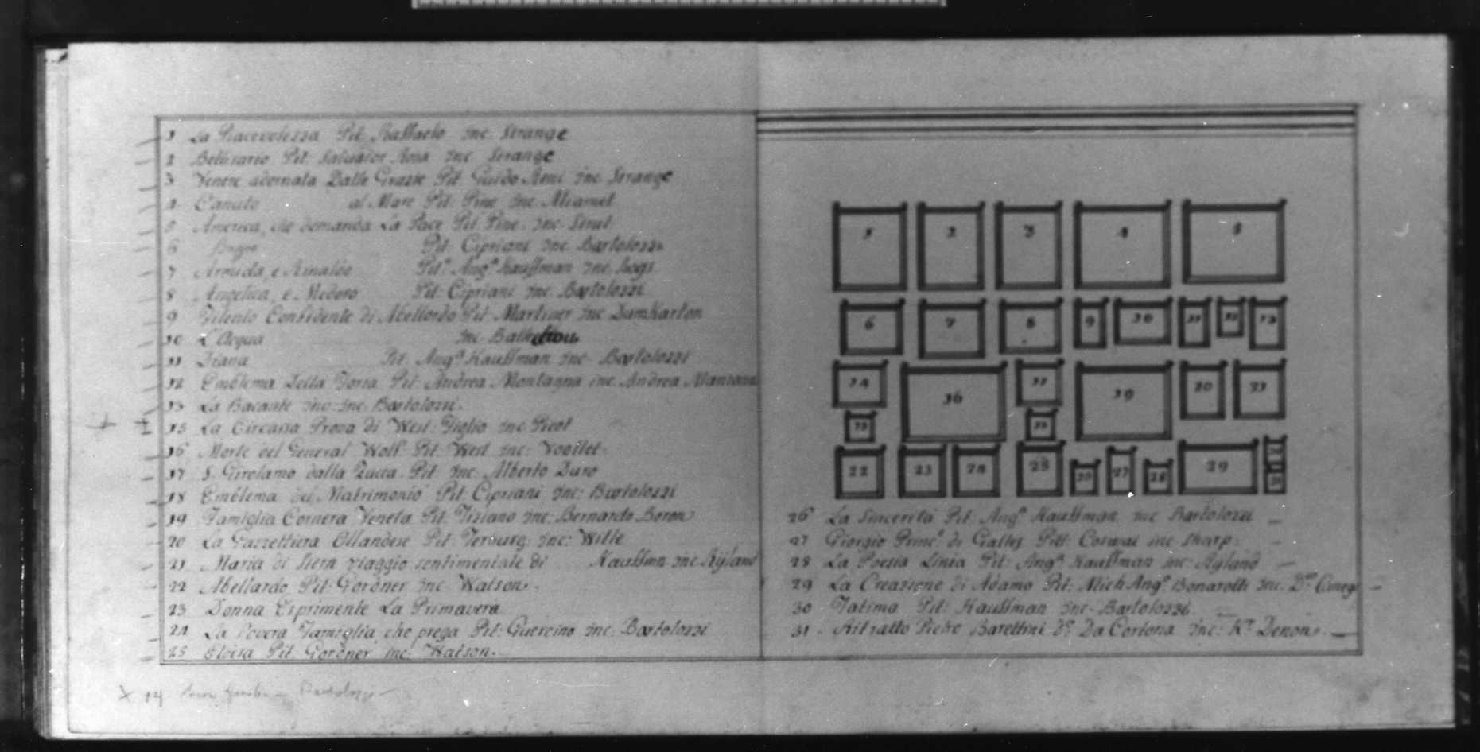 1 La Piacevolezza Pit: Raffaelo inc. Strange
2 Bellisario Pit: Salvator Rosa inc Strange
3 Venere adornata Dalle Grazie Pit Guido Reni inc. Strange
4 Canuto al Mare Pit: Pine inc.
5 America, che domanda La Pace Pit. Pine. inc.
6 Pit. Cipriani inc. Bartolozzi
7 Armida, e Rinaldo Pit.ª Ang.ª Kauffman inc.
8 Angelica, e Medoro Pit: Cipriani inc. Bartolozzi
9 Confidente di Abellardo Pit inc
10 L'Acqua inc.
11 Diana Pit. Ang.ª Kauffman inc. Bartolozzi
12 Emblema Della Pit. Andrea Montagna inc. Andrea
13 La Bacante inc: inc. Bartolozzi.
15 La Circassa Prova di West. Figlio inc Picot
16 Morte del General Wolf. Pit. West inc: Woollet.
17 S. Girolamo dalla Zucca. Pit. inc. Alberto Duro
18 Emblema del Matrimonio Pit Cipriani inc: Bartolozzi
19 Famiglia Cornera Veneta Pit. Tiziano inc. Bernardo Boron
20 La Gazzettiera Ollandese Pit Terburg inc: Wille
21 Maria di Stern viaggio sentimentale di Kauffman inc Ryland
22 Abellardo Pit Gordner inc Watson.
23 Donna Esprimente La Primavera
24 La Povera Famiglia che prega Pit: Guercino inc. Bartolozzi
25 Eloisa Pit Gordner inc: Watson.
X 14
1 2 3 4 5
6 7 8 9 10 11 12 13
14 16 17 19 20 21
15 18
22 23 24 25 26 27 28 29 30
31
26 La Sincerità Pit. Ang.ª Kauffman inc Bartolozzi
27 Giorgio Princ.ᵉ di Galles Pitt. Corwai inc Sharp.
28 La Poesia Linia Pit: Ang.ª Kauffman inc Ryland
29 La Creazione di Adamo Pit: Mich Ang.º Bonarotti inc. D.º
30 Fatima Pit: Kauffman inc. Bartolozzi
31 Ritratto Barettini D.º Da Cortona inc. Denon.